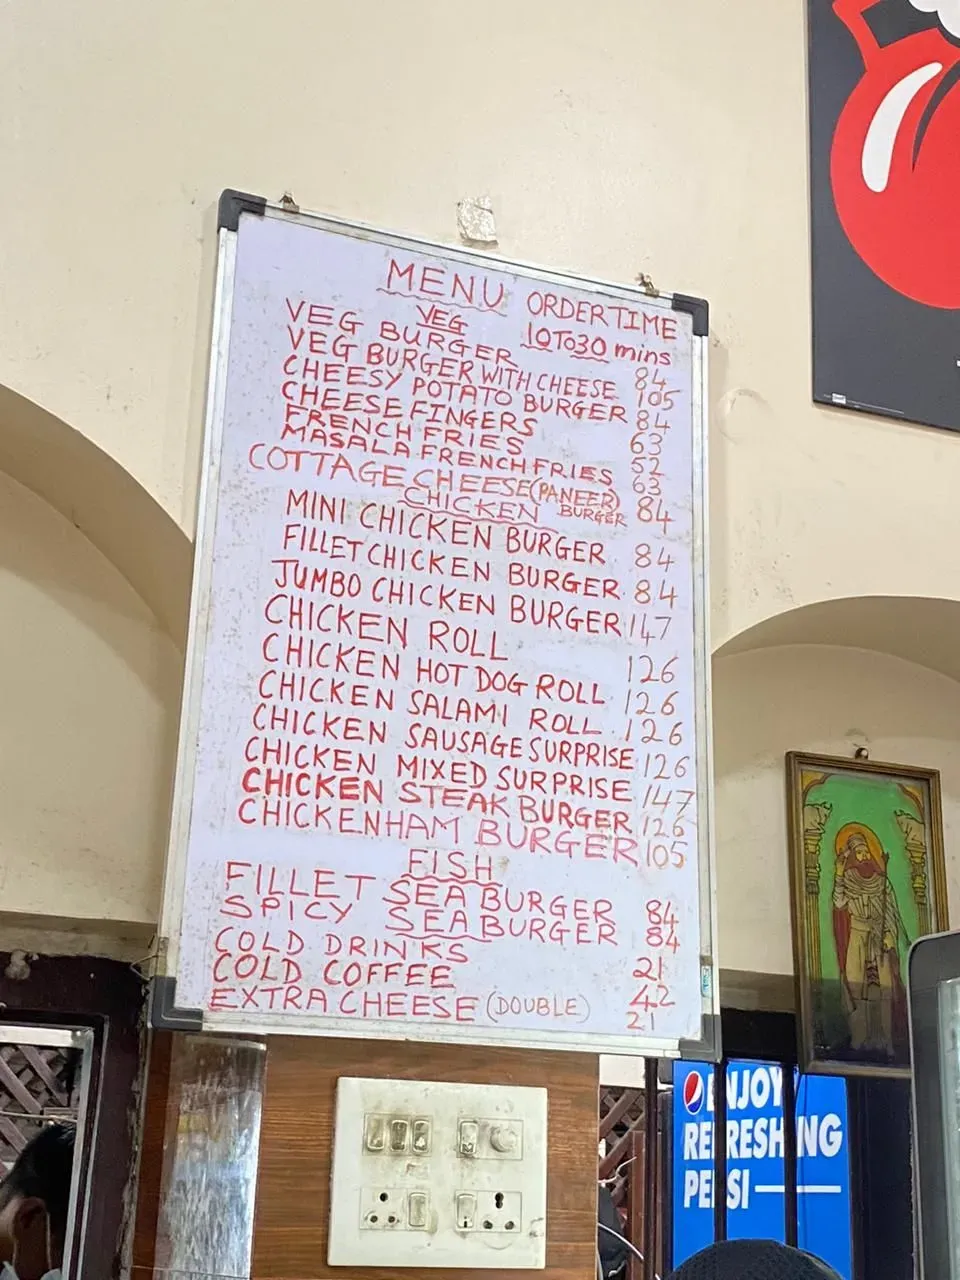 MENU ORDERTIME
VEG 10 TO 30 mins
VEG BURGER 84
VEG BURGER WITH CHEESE 105
CHEESY POTATO BURGER 84
CHEESE FINGERS 63
FRENCH FRIES 52
MASALA FRENCH FRIES 63
COTTAGE CHEESE (PANEER) BURGER 84
CHICKEN
MINI CHICKEN BURGER 84
FILLET CHICKEN BURGER 84
JUMBO CHICKEN BURGER 147
CHICKEN ROLL 126
CHICKEN HOT DOG ROLL 126
CHICKEN SALAMI ROLL 126
CHICKEN SAUSAGE SURPRISE 126
CHICKEN MIXED SURPRISE 147
CHICKEN STEAK BURGER 126
CHICKEN HAM BURGER 105
FISH
FILLET SEA BURGER 84
SPICY SEA BURGER 84
COLD DRINKS 21
COLD COFFEE 42
EXTRA CHEESE (DOUBLE) 21
ENJOY
REFRESHING
PEPSI